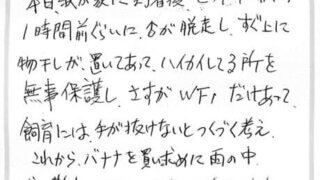 1時間前ぐらいに、古が脱走し、すぐ上に
物干しが置いてあって、ハイカイしてる所を
無事保護し、さすがWF1だけあって
飼育には手が抜けないとつくづく考え
これから、バナナを買い求めに雨の中